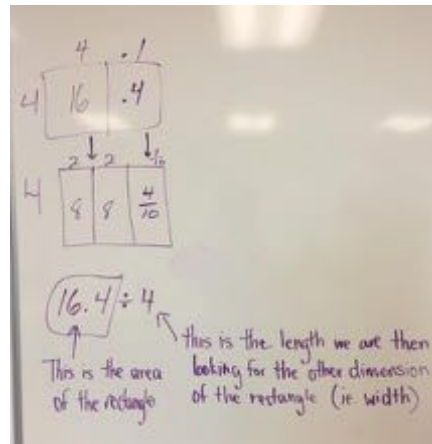 4 .1
4 16 .4
2 2 1/10
4 8 8 4/10
16.4 ÷ 4
This is the area
of the rectangle
this is the length we are then
looking for the other dimension
of the rectangle (ie. width)